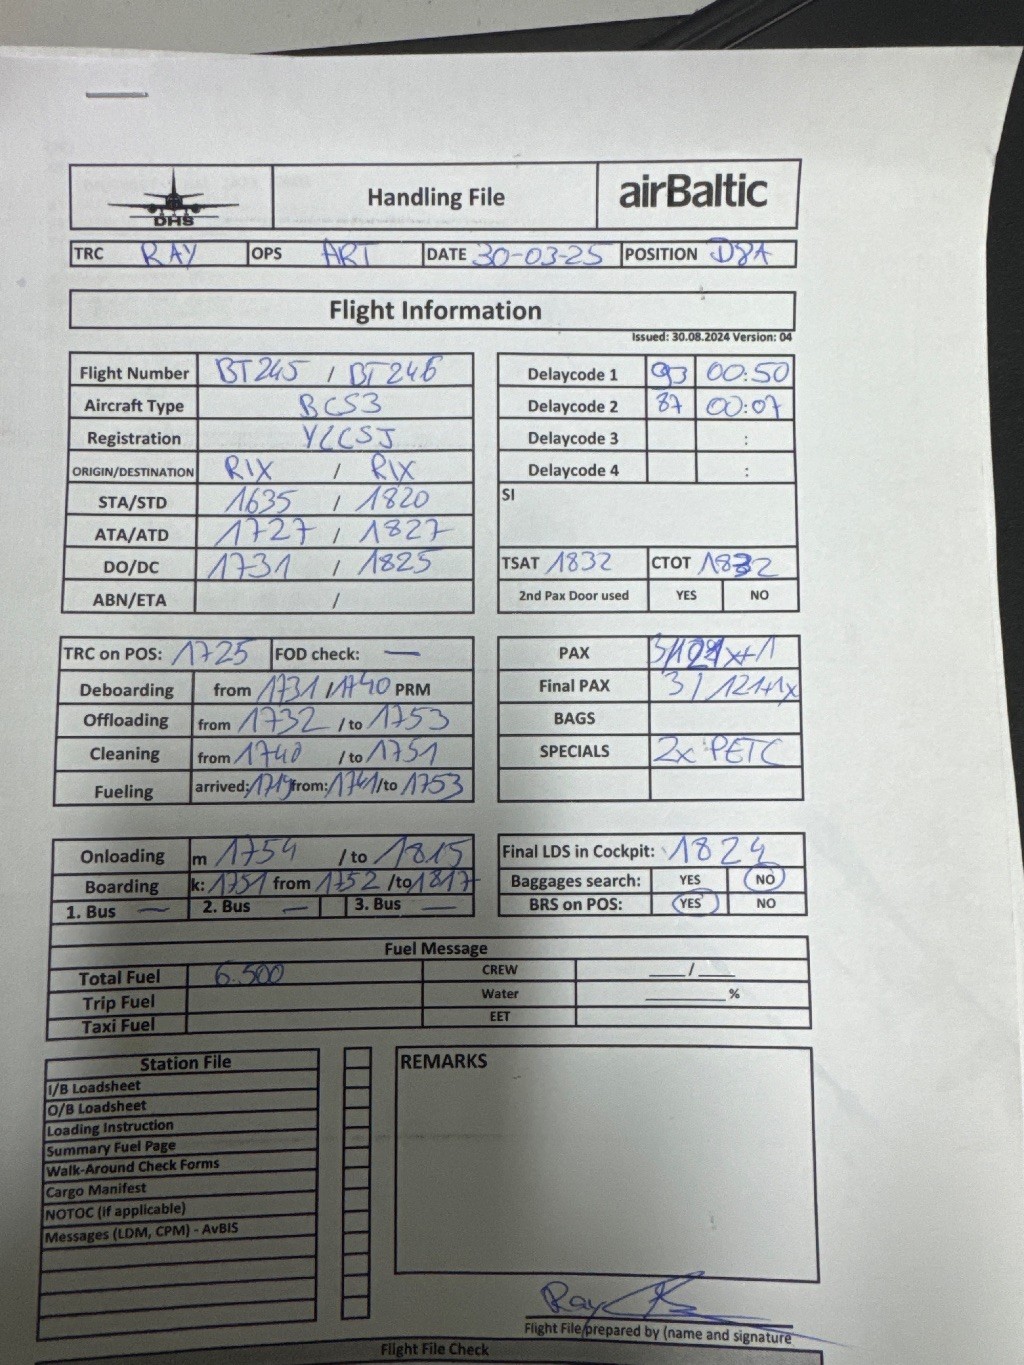 DHS Handling File airBaltic
TRC RAY OPS ART DATE 30-03-25 POSITION D8A
Flight Information
Issued: 30.08.2024 Version: 04
Flight Number BT245 / BT246
Aircraft Type BCS3
Registration YLCSJ
ORIGIN/DESTINATION RIX / RIX
STA/STD 1635 / 1820
ATA/ATD 1727 / 1827
DO/DC 1731 / 1825
ABN/ETA /
Delaycode 1 93 00:50
Delaycode 2 87 00:07
Delaycode 3 :
Delaycode 4 :
SI
TSAT 1832 CTOT 1832
2nd Pax Door used YES NO
TRC on POS: 1725 FOD check: —
Deboarding from 1731 / 1740 PRM
Offloading from 1732 / to 1753
Cleaning from 1740 / to 1751
Fueling arrived: from: 1741 /to 1753
PAX
Final PAX 3 / 121+1x
BAGS
SPECIALS 2x PETC
Onloading m 1754 / to 1815
Boarding k: 1751 from 1752 /to 1817
1. Bus — 2. Bus — 3. Bus —
Final LDS in Cockpit: 1824
Baggages search: YES NO
BRS on POS: YES NO
Fuel Message
Total Fuel 6.500 CREW ___/___
Trip Fuel Water ______%
Taxi Fuel EET
Station File
I/B Loadsheet
O/B Loadsheet
Loading Instruction
Summary Fuel Page
Walk-Around Check Forms
Cargo Manifest
NOTOC (if applicable)
Messages (LDM, CPM) - AvBIS
REMARKS
Ray
Flight File prepared by (name and signature
Flight File Check